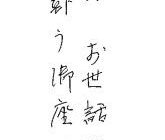 お世話
う御座